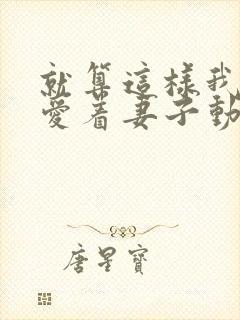 就算這樣我
愛着妻子動
唐星寶